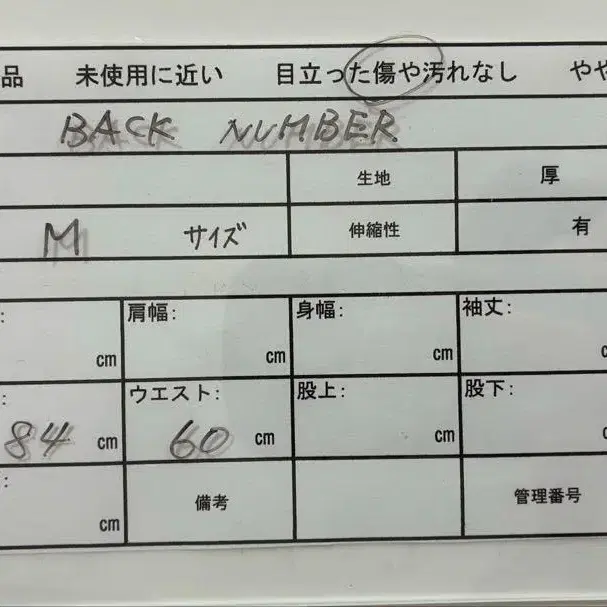 品 未使用に近い 目立った傷や汚れなし やや
BACK NUMBER
生地 厚
M サイズ 伸縮性 有
: cm 肩幅: cm 身幅: cm 袖丈: c
: 84 cm ウエスト: 60 cm 股上: cm 股下: c
: cm 備考 管理番号